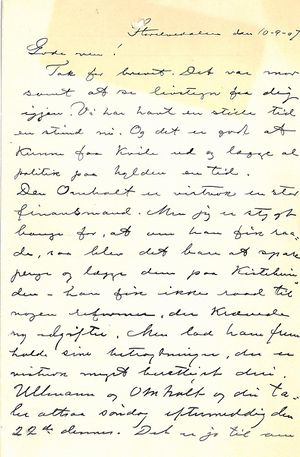 den 10-9-07
Gode ven!
Tak for brevet. Det var mor
somt at se livstegn fra dig
igjen. Vi har havt en stille tid
en stund nu. Og det er godt at
kunne faa kvile ud og lægge al
politik paa hylden en tid.
Den Omholt er vistnok en stor
finansmand. Men jeg er stygt
bange for, at om han fik raa-
de, saa blev det bare at spare
penge og lægge dem paa
den - han fik ikke raad til
nogen reformer, der krævede
ny udgifter. Men lad ham frem
holde sine betragtninger, der er
vistnok meget i.
Ullmann og Omholt og du ta-
ler altsaa søndag eftermiddag den
22de dennes. Det er jo til om